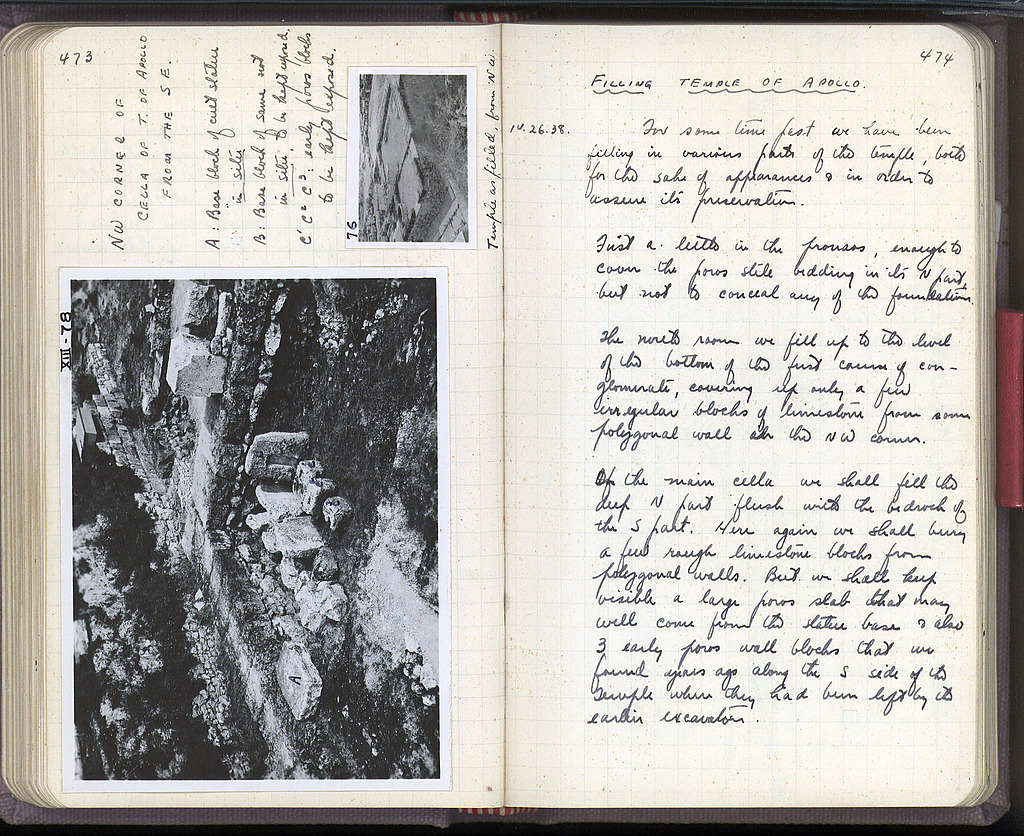 473
NW CORNER OF
CELLA OF T. OF APOLLO
FROM THE S.E.
A: Base block of cult statue
in situ
B: Base block of same not
in situ, to be kept exposed.
C' C² C³: early poros blocks
to be kept exposed.
76
Temple as filled, from N.W.
XIII-78
A
474
FILLING TEMPLE OF APOLLO.
IV.26.38.
For some time past we have been
filling in various parts of the temple, both
for the sake of appearances & in order to
assure its preservation.
First a little in the pronaos, enough to
cover the poros stele bedding in its N part,
but not to conceal any of the foundations.
The north room we fill up to the level
of the bottom of the first course of con-
glomerate, covering up only a few
irregular blocks of limestone from some
polygonal wall at the NW corner.
Of the main cella we shall fill the
deep N part flush with the bedrock of
the S part. Here again we shall bury
a few rough limestone blocks from
polygonal walls. But we shall keep
visible a large poros slab that may
well come from the statue base & also
3 early poros wall blocks that we
found years ago along the S side of the
temple where they had been left by the
earlier excavators.